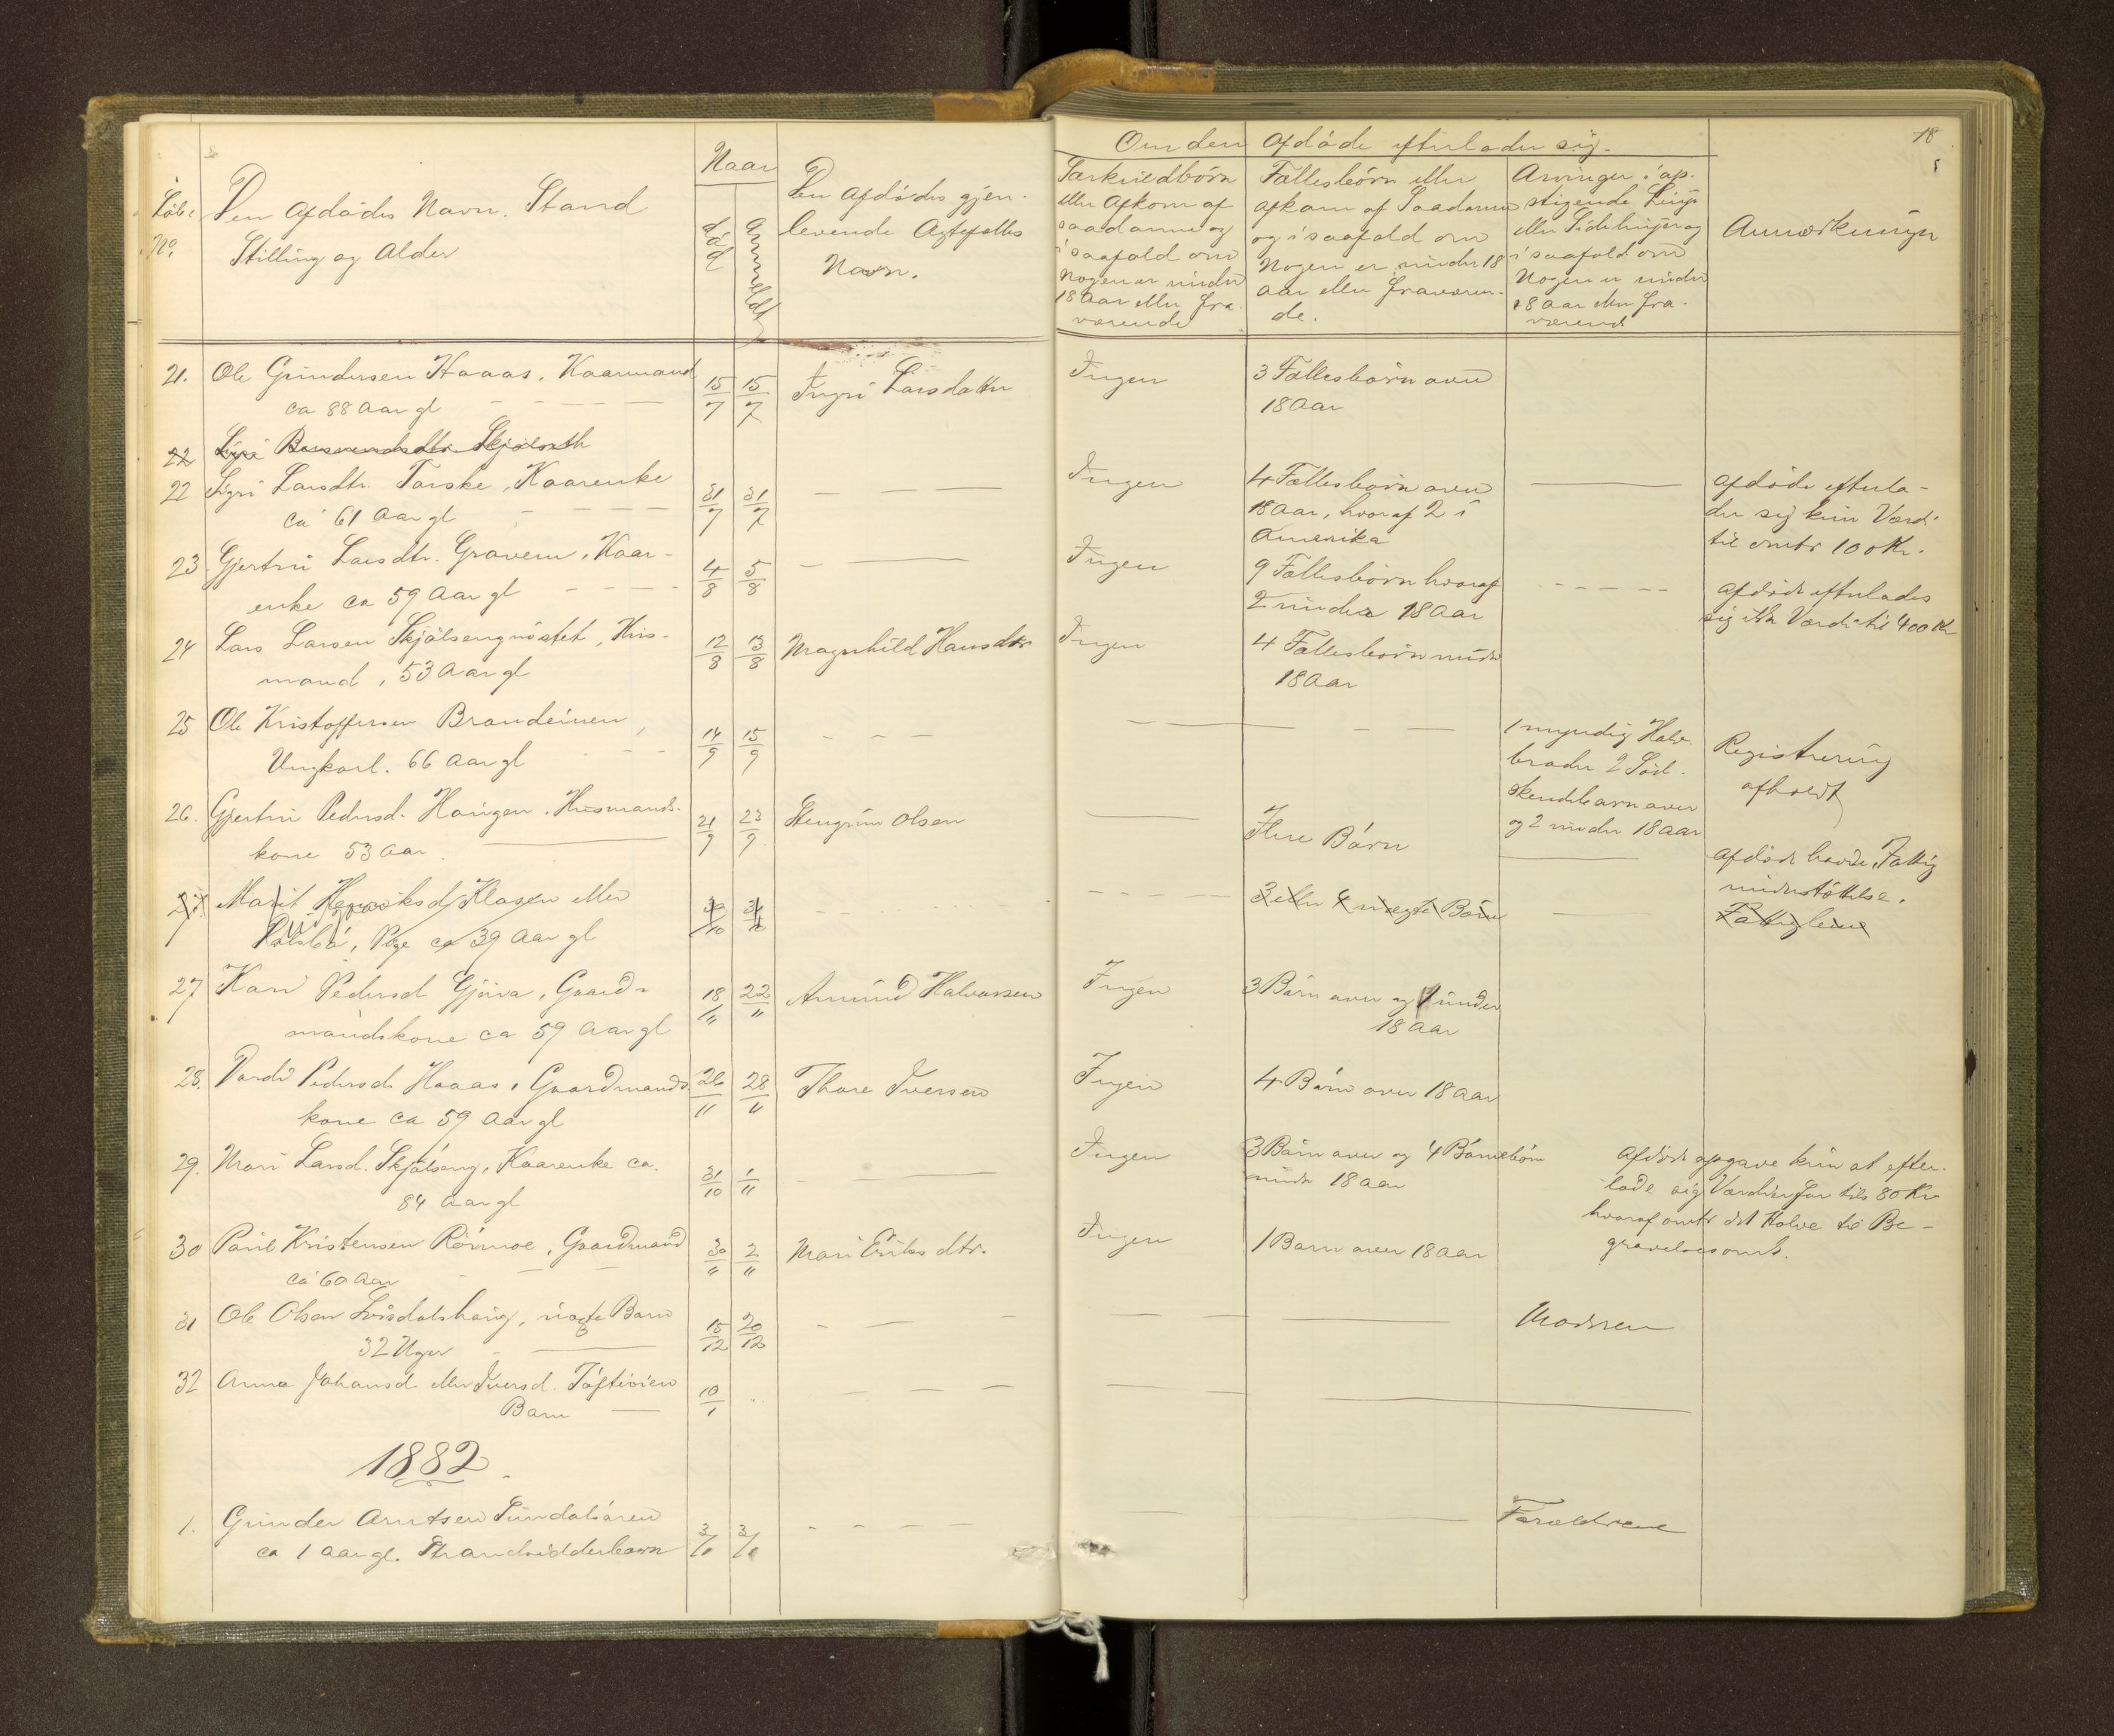 Om den afdøde efterlader sig.
18
Løbe No.
Den Afdødes Navn. Stand
Stilling og Alder
Naar
død
anmeldt
Den afdødes gjen-
levende Ægtefælles
Navn.
Særkuldbørn
eller Afkom af
saadanne og
i saafald om
Nogen er under
18 Aar eller fra-
værende
Fællesbørn eller
afkom af Saadanne
og i saafald om
Nogen er under 18
Aar eller fraværen-
de.
Arvinger i op-
stigende Linje
eller Sidelinjer og
i saafald om
Nogen er under
18 Aar eller fra-
værende
Anmærkninger
21. Ole Gundersen Haaas, Kaarmand 15/7 15/7 Ingri Larsdatter Ingen 3 Fællesbørn over
ca 88 Aar gl 18 Aar
22
22 Sigri Larsdtr. Torske, Kaarenke 31/7 31/7 Ingen 4 Fællesbørn over afdøde efterla-
ca 61 Aar gl 18 Aar, hvoraf 2 i der sig kun Værdi
Amerika til omtr 100 Kr.
23 Gjertru Larsdtr. Gravem, Kaar- 4/8 5/8 Ingen 9 Fællesbørn hvoraf afdøde efterlades
enke ca 59 Aar gl 2 under 18 Aar sig ikke Værdi til 400 Kr
24 Lars Larsen Skjølsengnøstet, Hus- 12/8 13/8 Magnhild Hansdtr Ingen 4 Fællesbørn under
mand, 53 Aar gl 18 Aar
25 Ole Kristoffersen Brandeinen, 14/9 15/9 1 myndig Halv- Registrering
Ungkarl. 66 Aar gl broder 2 Sød- afholdt
skendebarn over
og 2 under 18 Aar
26. Gjertru Pedersd. Haugen. Husmands- 21/9 23/9 Stengrim Olsen Flere Børn afdøde havde Fattig
kone 53 Aar understøttelse.
27. Marit Henriksd Klagen eller 30/10 31/10 3 eller 4 uægte Børn Fattiglem
Pige ca 39 Aar gl
27 Kari Pedersd Gjøra, Gaard- 18/11 22/11 Amund Halvorsen Ingen 3 Børn over og 1 under
mandskone ca 59 Aar gl 18 Aar
28. Pedersd. Haaas, Gaardmands- 26/11 28/11 Thore Iversen Ingen 4 Børn over 18 Aar
kone ca 59 Aar gl
29. Mari Larsd. Skjølseng, Kaarenke ca. 31/10 1/11 Ingen 3 Børn over og 4 Børnebørn Afdøde opgave kun at efter-
84 Aar gl under 18 Aar lade sig Værdier for til 80 Kr
hvoraf omtr det Halve til Be-
gravelsesomk.
30 Paul Kristensen Rømoe, Gaardmand 30/11 2/11 Mari Eriksdtr. Ingen 1 Barn over 18 Aar
ca 60 Aar
31 Ole Olsen Lisdalshaug, uægte Barn 15/12 20/12 Moderen
32 Uger
32 Anna Johansd eller Iversd. Toftevien 10/1
Barn
1882
1. Gunder Arntsen Sundalsøren 3/1 3/1 Forældrene
ca 1 Aar gl. Strandsidderbarn